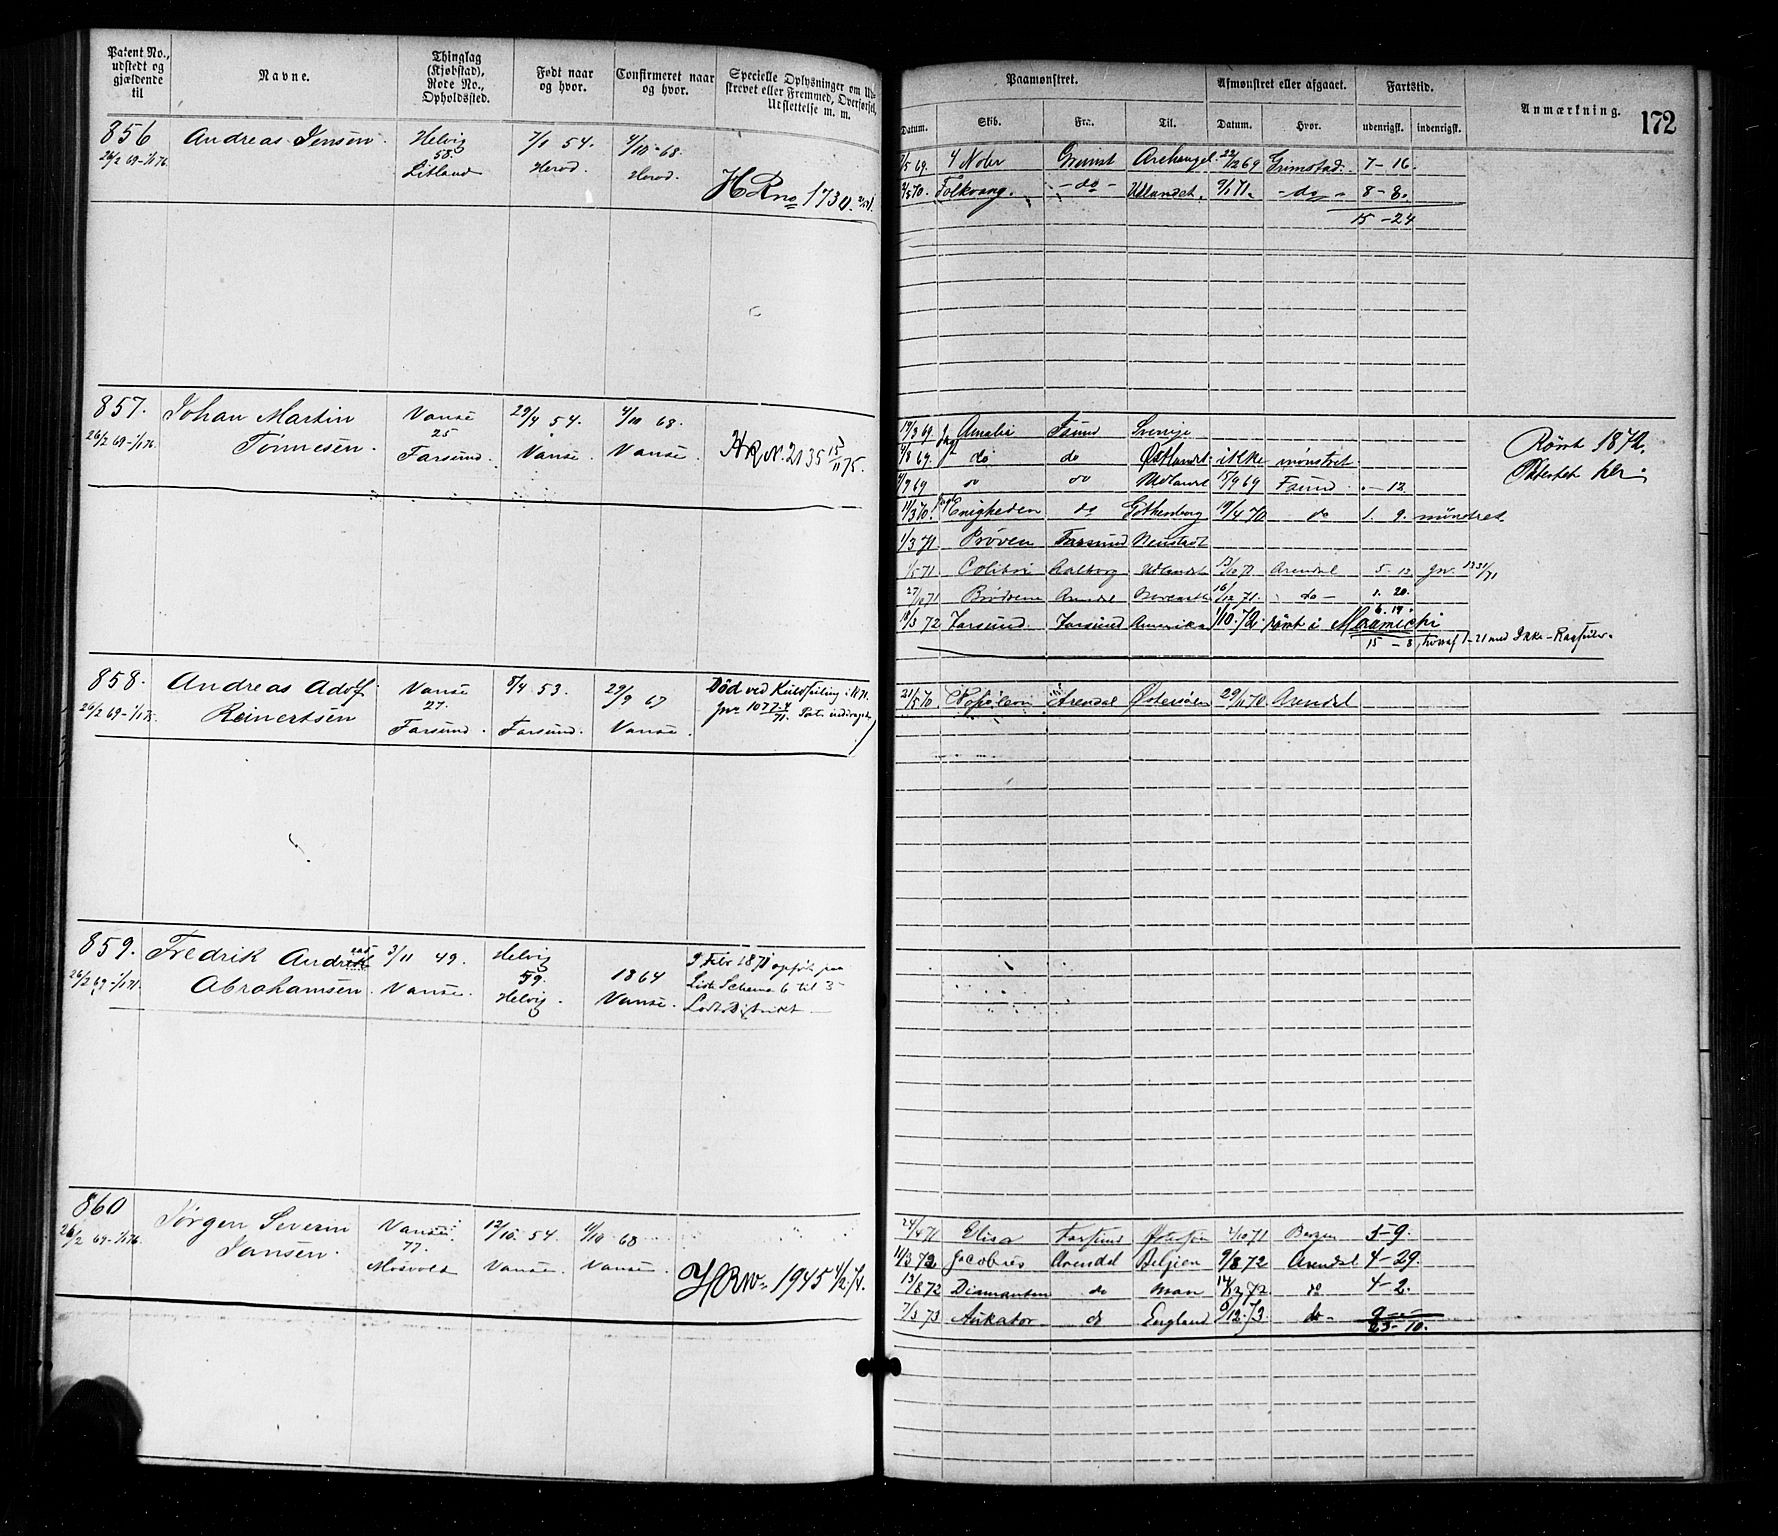 Patent No., udstedt og gjældende til
Navne.
Thinglag (Kjøbstad), Rode No., Opholdssted.
Født naar og hvor.
Confirmeret naar og hvor.
Specielle Oplysninger om Udstrevet eller Fremmed, Overførsel, Udslettelse m. m.
Paamønstret.
Afmønstret eller afgaaet.
Fartstid.
Anmærkning.
172
Datum.
Skib.
Fra.
Til.
Datum.
Hvor.
udenrigsk.
indenrigsk.
856 Andreas Jensen. Helvig 7/1 54. 4/10 - 68.
26/2 69 - 1/1 76 58. Herod. Herod.
Litland
H R no 1730.
4 Noler Grimst Archangel. 22/12 69 Grimstad. 7 - 16.
Folkvang. - do - Udlandet. 9/1 71. - do - 8 - 8.
15 - 24
857. Johan Martin Vanse 29/4 54. 4/10 68.
26/2 69 - 1/1 76. Tønnesen. 25 Vanse. Vanse.
Farsund.
HR N. 2135 15/11 75.
Amalie Fsund Sverige
4/8 69. do do Østlandet. ikke mønstret
69 do do Udlandet 15/9 69 Fsund. - 12.
11/3 70. Enigheden do Gothenborg 19/4 70 do 1. 9. mønstret
1/3 71. Prøven Farsund Neustadt
1/5 71 Colibri Aalborg Udlandet Arendal 5. 12
27/10 71 Brødrene Arendal 16/12 71. do - 1. 20.
18/3 72 Farsund. Farsund Amerika 1/10. 72. rømt i Miramichi 6. 19.
15 - 8
Rømt 1872.
858. Andreas Adolf Vanse 8/4 53. 29/9 67
26/2 69 - 1/1 75. Reinertsen 27. Farsund. Vanse.
Farsund.
Død ved Kuldseiling i 1871.
21/5 70 Arendal Østersøen 29/11 70 Arendal
859. Fredrik Andreas 3/11 49. Helvig
26/2 69 - 1/1 71. Abrahamsen. Vanse. 59. 1864
Helvig. Vanse.
9 Febr 1871 opført paa
Liste Schema 6 til 3
Lods District
860 Jørgen Severin Vanse. 12/10. 54. 4/10 68
26/2 69 - 1/1 76 Jansen. 77. Vanse. Vanse.
Mosvold
H R No 1945 4/2 74.
24/4 71 Elisa Farsund Østersøen 2/10 71 Bergen 5 - 9.
11/3 72 Jacobus Arendal Belgien 9/8 72 Arendal 4 - 29.
13/8 72 Diamanten do 14/12 72 do 4 - 2.
7/3 73 do England 6/12. 73. do - 9 -
23 - 10.